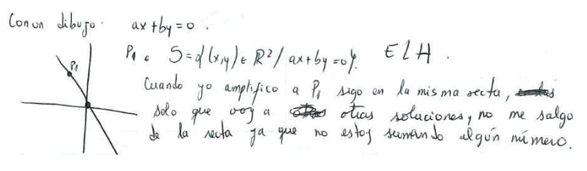 Con un dibujo. ax+by=0.
P1 ∈ S={(x,y) ∈ R²/ ax+by=0}. ELH.
P1
Cuando yo amplifico a P1 sigo en la misma recta,
solo que voy a otras soluciones, no me salgo
de la recta ya que no estoy sumando algún número.